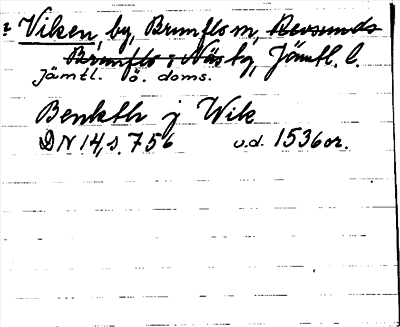 ? Viken, by, Brunflo sn, Revsunds
Brunflo o. Näs tg, Jämtl. l.
Jämtl. ö. doms.
Benkth j Wik
DN 14, s. 756 u.d. 1536 or.